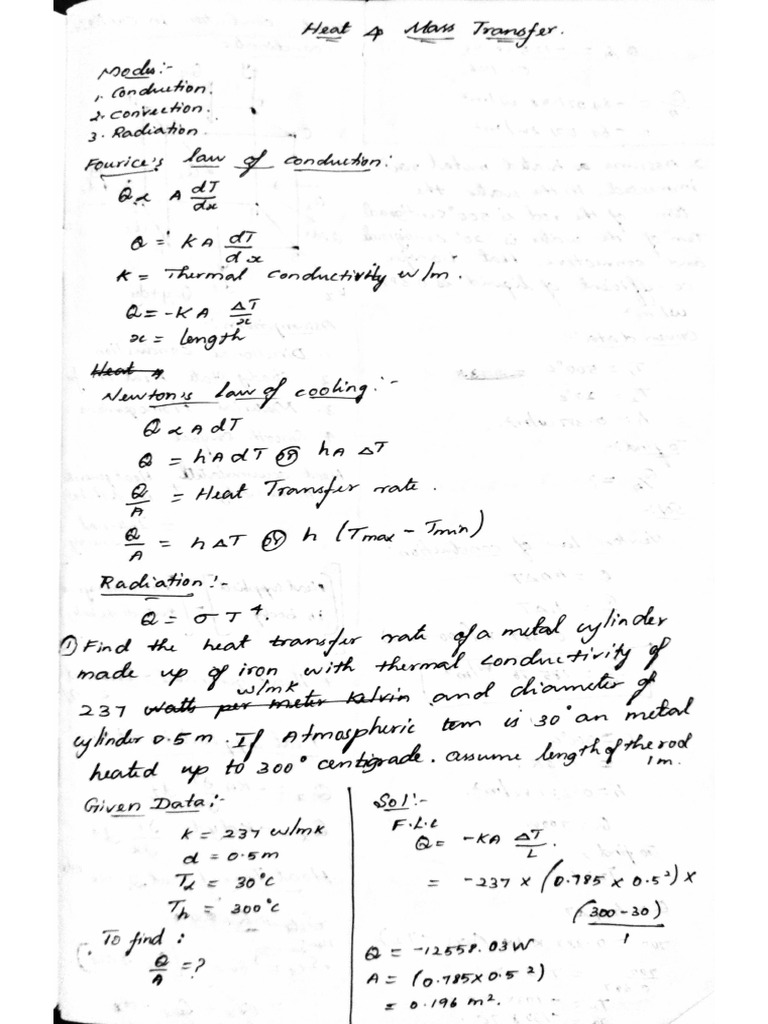 Heat & Mass Transfer.
Modes:-
1, Conduction.
2. Convection.
3. Radiation.
Fourice's law of conduction:
Q̇ ∝ A dT/dx
Q = KA dT/dx
K = Thermal conductivity w/m.
Q = -KA ΔT/x
x = length
Heat &
Newton's law of cooling:-
Q ∝ A dT
Q = hA dT (or) hA ΔT
Q/A = Heat Transfer rate.
Q/A = h ΔT (or) h (Tmax - Tmin)
Radiation:-
Q = σ T⁴
① Find the heat transfer rate of a metal cylinder
made up of iron with thermal conductivity of
w/mk
237 watts per meter Kelvin and diameter of
cylinder 0.5 m. If Atmospheric tem is 30° an metal
heated up to 300° centigrade. assume length of the rod
1m.
Given Data:-
K = 237 w/mk
d = 0.5m
T = 30°C
Th = 300°C
To find:
Q/A = ?
Sol:-
F.L.C
Q = -KA ΔT/L.
= -237 × (0.785 × 0.5²) ×
(300-30)/1
Q = -12558.03W
A = (0.785×0.5²)
= 0.196 m².